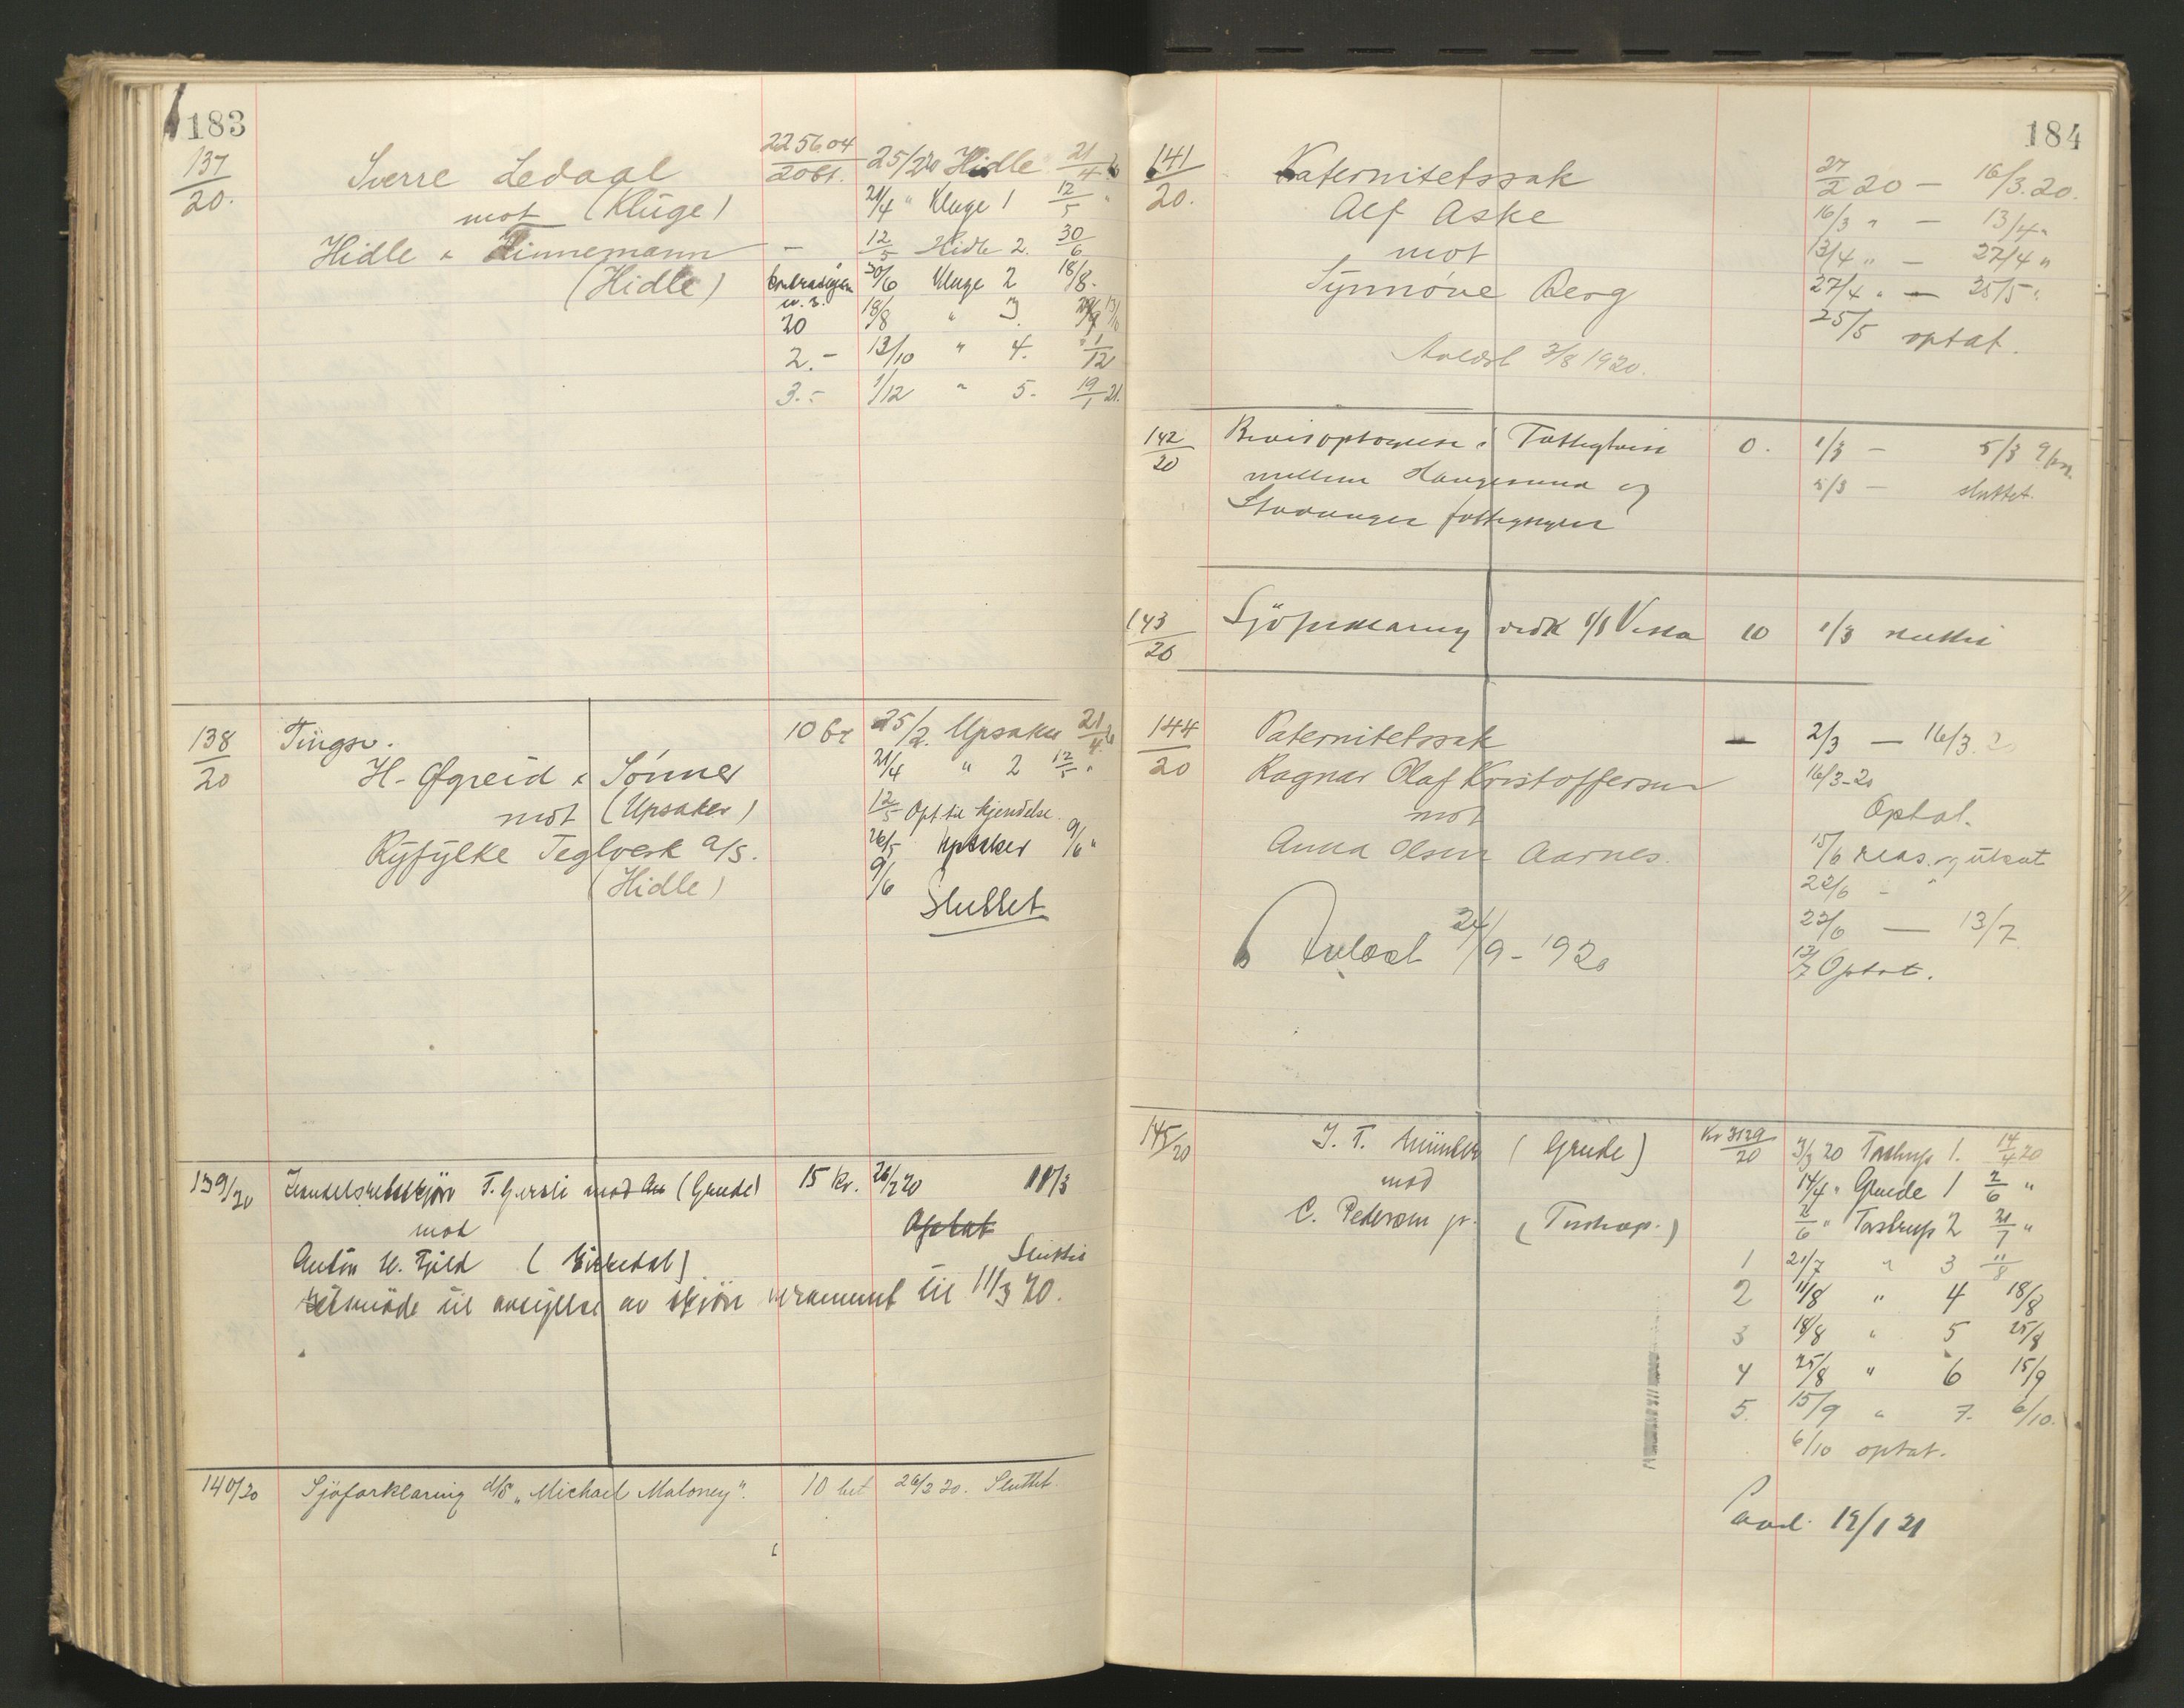 183
137/20.
Sverre Ledaal
mot (Kluge)
Hidle & Zinnemann
(Hidle)
225604
20 bt.
25/2 20 Hidle 21/4
21/4 " Kluge 1 12/5 "
- 12/5 Hidle 2. 30/6
30/6 Kluge 2 18/8.
20 18/8 " 3.
2.- 13/10 " 4. 1/12
3.- 1/12 " 5. 19/1 21.
138/20
Tingsv.
H. Øgreid & Sønner
mot (Upsaker)
Ryfylke Teglverk a/s.
(Hidle)
10 bt
25/2. Upsaker 21/4
21/4 " 2 12/5 "
12/5 Opt. til kjendelse.
26/5 Upsaker 9/6 "
9/6
Sluttet
139/20
Handelsretsskjøn T. Gjersli mod (Grude)
mod
Anton H. Fjeld
Retsmøde til avsigelse av skjøn berammet til 11/3 20.
15 kr. 26/2 20 11/3
Optat
Sluttet
140/20 Sjøforklaring d/s „Michael Maloney". 10 bet 26/2 20. Sluttet.
184
141/20.
Paternitetssak
Alf Aske
mot
Synnøve Berg
Avløst 3/8 1920.
27/2 20 - 16/3.20.
16/3 " - 13/4 "
13/4 " - 27/4 "
27/4 " - 25/5 "
25/5 optat.
142/20
Bevisoptagelse i Fattigtvist
mellem Haugesund og
Stavanger fattigstyrer
0. 1/3 - 5/3 9 fm.
5/3 - sluttet.
143/20 Sjøforklaring vedk s/s Vesta 10 1/3 sluttet
144/20
Paternitetssak
Ragnar Olaf Kristoffersen
mot
Anna Olsen Aarnes.
Avløst 24/9 - 1920
- 2/3 - 16/3.2
16/3-20
Optat.
15/6 reas. og utsat
22/6 - "
22/6 - 13/7
13/7 Optat.
145/20
(Grude)
mod
C. Pedersen jr. (Tastrup.)
Kr 3129/20
3/3 20 Tastrup 1. 14/4 20
14/4 " Grude 1 2/6 "
2/6 " Tastrup 2 21/7 "
1 21/7 " 3 11/8
2 11/8 " 4 18/8
3 18/8 " 5 25/8
4 25/8 " 6 15/9
5. 15/9 " 7. 6/10.
6/10 optat.
19/1 21